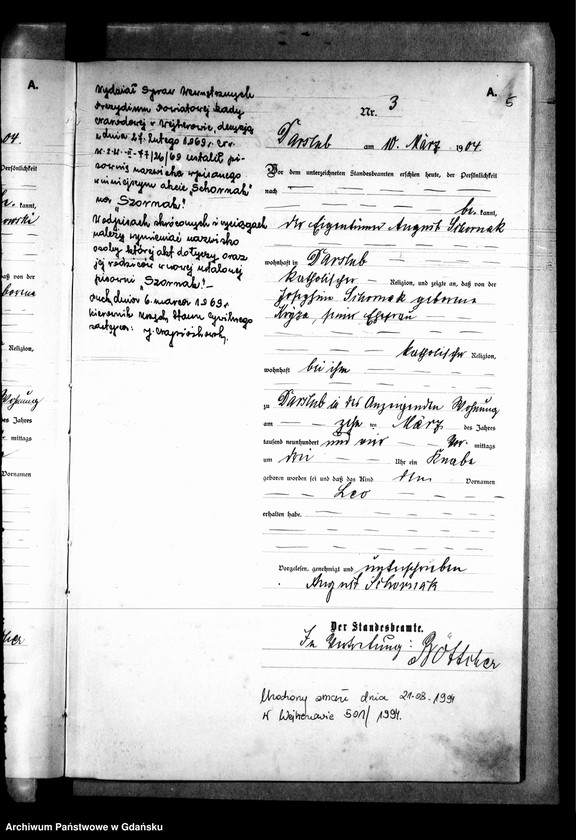 A.
A.
5
Wydział Spraw Wewnętrznych
Prezydium Powiatowej Rady
Narodowej w Wejherowie, decyzją
z dnia 27. lutego 1969r. Nr.
ustalił, pi-
sownię nazwiska wpisanego
w niniejszym akcie "Schornak"
na "Szornak"!
W odpisach skróconych i wyciągach
należy wymieniać nazwisko
osoby której akt dotyczy oraz
jej rodziców w nowej ustalonej
pisowni "Szornak"!-
Puck, dnia 6. marca 1969r.
Kierownik Urzędu Stanu Cywilnego
Nr. 3
Darslub am 10. März 1904.
Vor dem unterzeichneten Standesbeamten erschien heute, der Persönlichkeit
nach
be kannt,
der Eigentümer August Schornak
wohnhaft in Darslub
katholischer Religion, und zeigte an, daß von der
Josephine Schornak geborene
seiner Ehefrau
katholischer Religion,
wohnhaft bei ihm
zu Darslub in des Anzeigenden Wohnung
am zehn ten März des Jahres
tausend neunhundert und vier Vor mittags
um drei Uhr ein Knabe
geboren worden sei und daß das Kind den Vornamen
Leo
erhalten habe.
Vorgelesen, genehmigt und unterschrieben
August Schornak
Der Standesbeamte.
In Vertretung: Böttcher
Urodzony zmarł dnia 21-08-1994
w Wejherowie 501/1994.
04.
Persönlichkeit
kannt,
daß von der
Religion,
Wohnung
des Jahres
mittags
Vornamen
Archiwum Państwowe w Gdańsku